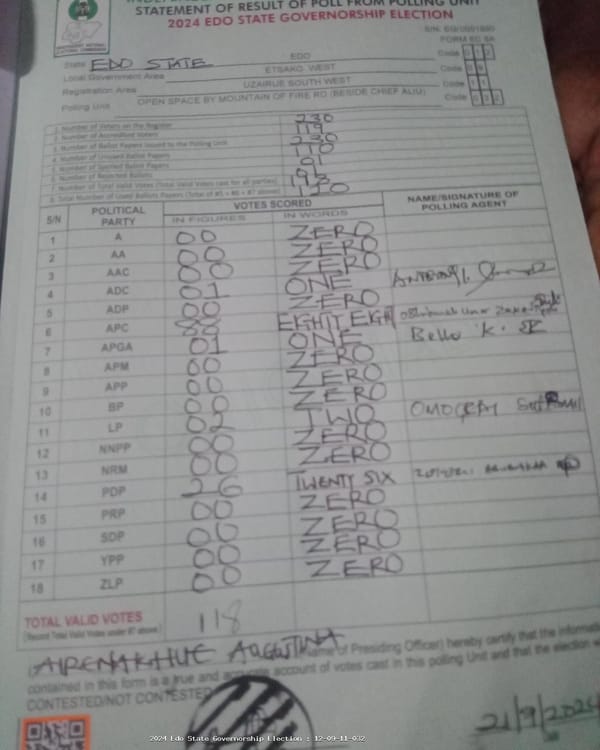 STATEMENT OF RESULT OF POLL FROM POLLING UNIT
2024 EDO STATE GOVERNORSHIP ELECTION
FORM EC 8A
State EDO STATE EDO Code
Local Government Area ETSAKO WEST Code
Registration Area UZAIRUE SOUTH WEST Code
Polling Unit OPEN SPACE BY MOUNTAIN OF FIRE RD (BESIDE CHIEF ALIU) Code
1. Number of Voters on the Register 230
2. Number of Accredited Voters 119
3. Number of Ballot Papers Issued to the Polling Unit 230
4. Number of Unused Ballot Papers 110
5. Number of Spoiled Ballot Papers
6. Number of Rejected Ballots
7. Number of Total Valid Votes (Total Valid Votes cast for all parties)
8. Total Number of Used Ballots Papers (Total of #5 + #6 + #7 above)
S/N POLITICAL PARTY VOTES SCORED NAME/SIGNATURE OF POLLING AGENT
IN FIGURES IN WORDS
1 A 00 ZERO
2 AA 00 ZERO
3 AAC 00 ZERO
4 ADC 01 ONE
5 ADP 00 ZERO
6 APC 88 EIGHTY EIGHT
7 APGA 01 ONE Bello K.
8 APM 00 ZERO
9 APP 00 ZERO
10 BP 00 ZERO
11 LP 02 TWO
12 NNPP 00 ZERO
13 NRM 00 ZERO
14 PDP 26 TWENTY SIX
15 PRP 00 ZERO
16 SDP 00 ZERO
17 YPP 00 ZERO
18 ZLP 00 ZERO
TOTAL VALID VOTES 118
(Record Total Valid Votes under #7 above)
I AIRENAKHUE AUGUSTINA (Name of Presiding Officer) hereby certify that the informatio
contained in this form is a true and accurate account of votes cast in this polling Unit and that the election w
CONTESTED/NOT CONTESTED
21/9/2024
2024 Edo State Governorship Election : 12-09-11-032